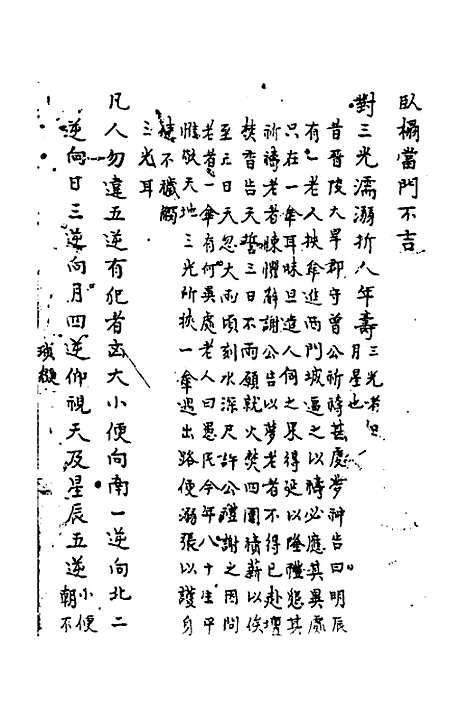 臥榻當門不吉
對三光濡溺折人年壽三光者日月星也
昔晋陵大旱郡守曾公祈禱甚虔夢神告曰明辰
有一老人挾傘進西門城逼之以禱必應其異處
只在一傘耳昧旦遣人伺之果得延以隆禮懇其
祈禱老者悚懼辭謝公告以夢老者不得已赴壇
挾香告天誓三日不雨願就火焚四圍積薪以俟
至三日天忽大雨頃刻水深尺許公禮謝之因問
老者一傘有何異處老人曰愚民今年八十生平
惟敬天地三光所挾一傘遇出路便溺張以護身
使不穢觸
三光耳
凡人勿違五逆有犯者凶大小便向南一逆向北二
逆向日三逆向月四逆仰視天及星辰五逆朝小便不